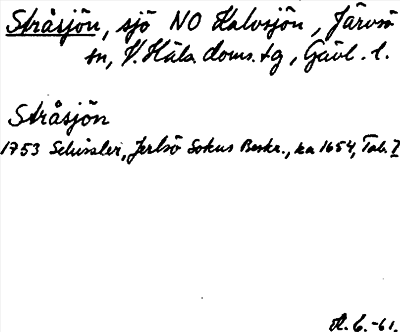 Stråsjön, sjö NO Halvsjön, Järvsö
sn, V. Häls. doms. tg, Gävl. l.
Stråsjön
1753 Schissler, Jerfsö Sokns Beskr., ka 1654, Tab. I
A. C. -61.